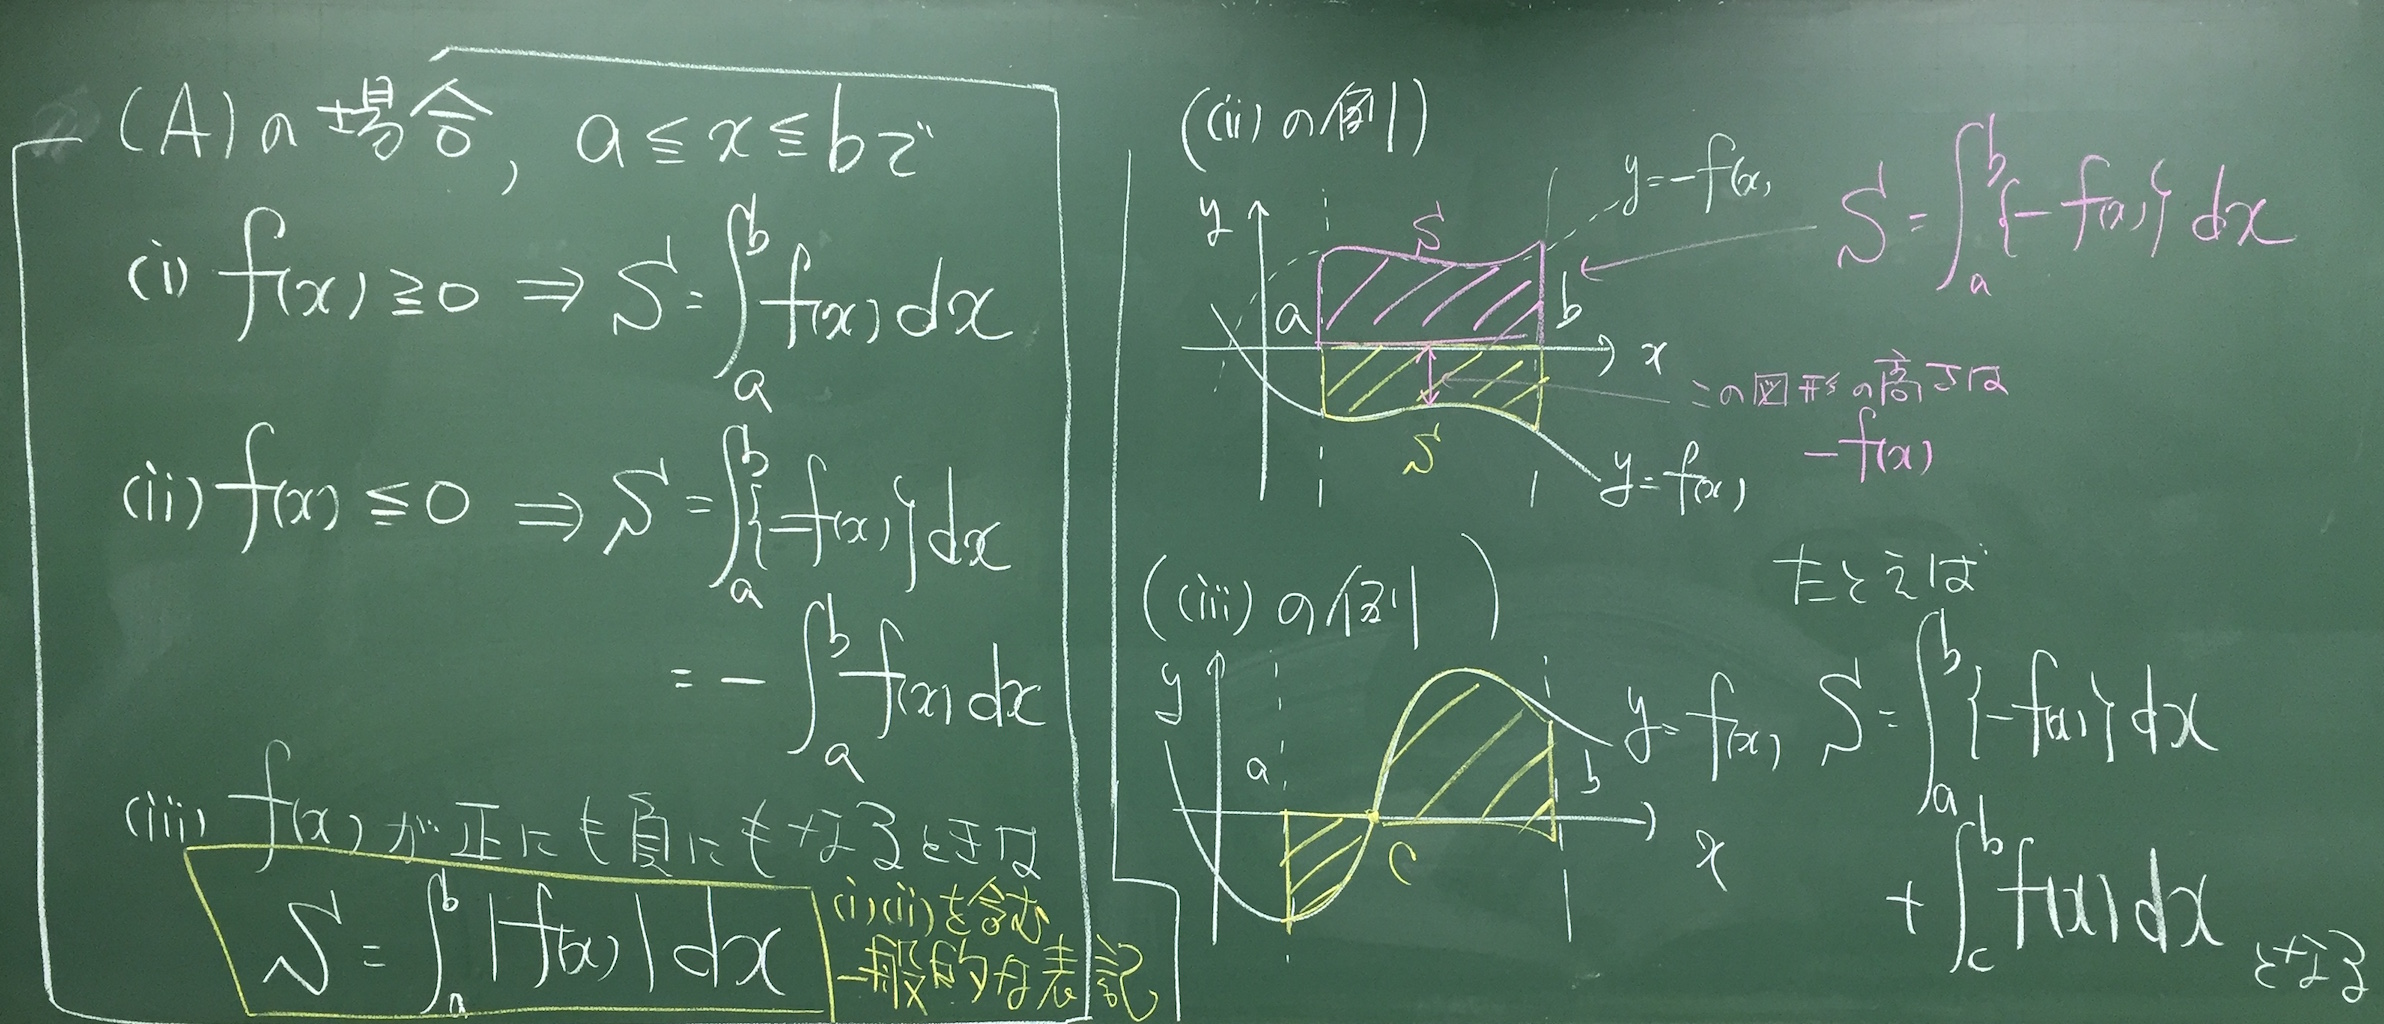 (A)の場合, a≦x≦bで
(i) f(x)≧0 ⇒ S=∫_a^b f(x)dx
(ii) f(x)≦0 ⇒ S=∫_a^b{-f(x)}dx
=-∫_a^b f(x)dx
(iii) f(x)が正にも負にもなるときは
S=∫_a^b|f(x)|dx
(i)(ii)を含む
一般的な表記
((ii)の例)
y
y=-f(x)
S
a
b
x
S
y=f(x)
S=∫_a^b{-f(x)}dx
この図形の高さは
-f(x)
((iii)の例)
y
a
c
b
x
y=f(x)
たとえば
S=∫_a^b{-f(x)}dx
+∫_c^b f(x)dx
となる